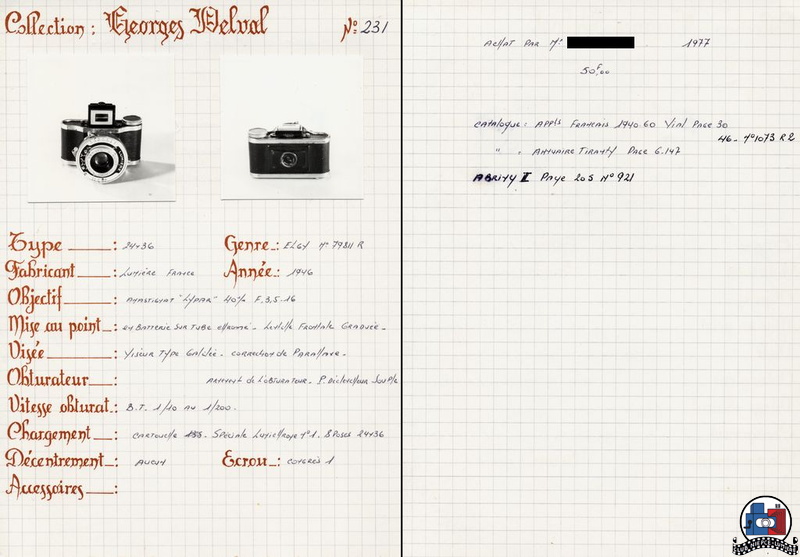 Collection : Georges Delval N° 231
Type : 24x36 Genre : ELGY N° 79811 R
Fabricant : LUMIÈRE FRANCE Année : 1946
Objectif : ANASTIGMAT "LYPAR" 40% F.3,5-16
Mise au point : EN BATTERIE SUR TUBE CHROMÉ - LENTILLE FRONTALE GRADUÉE -
Visée : VISEUR TYPE GALILÉE - CORRECTION DE PARALLAXE -
Obturateur : ARMEMENT DE L'OBTURATEUR - P. DÉCLENCHEUR SOUPLE
Vitesse obturat : B.T. 1/10 AU 1/200 -
Chargement : CARTOUCHE SPÉCIALE LUMIÈRE N°1. 8 POSES 24x36
Décentrement : AUCUN Ecrou : CONGRÈS 1
Accessoires :
ACHAT PAR Mr 1977
50F,00
CATALOGUE : APPLS FRANÇAIS 1940.60 Vial PAGE 30
46 - N°1073 R2
" . ANNUAIRE TIRANTY PAGE 6.147
ABRING II PAGE 205 N° 921